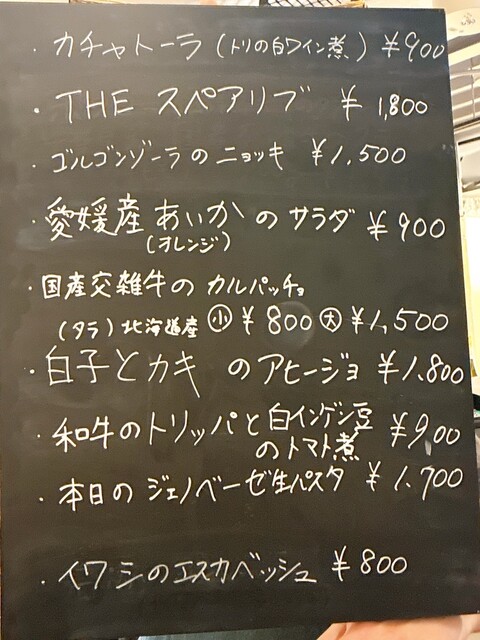 ・カチャトーラ(トリの白ワイン煮) ¥900
・THE スペアリブ ¥1,800
・ゴルゴンゾーラのニョッキ ¥1,500
・愛媛産 あいかのサラダ ¥900
(オレンジ)
・国産交雑牛のカルパッチョ
(タラ)北海道産 小 ¥800 大 ¥1,500
・白子とカキのアヒージョ ¥1,800
・和牛のトリッパと白インゲン豆 ¥900
のトマト煮
・本日のジェノベーゼ生パスタ ¥1,700
・イワシのエスカベッシュ ¥800